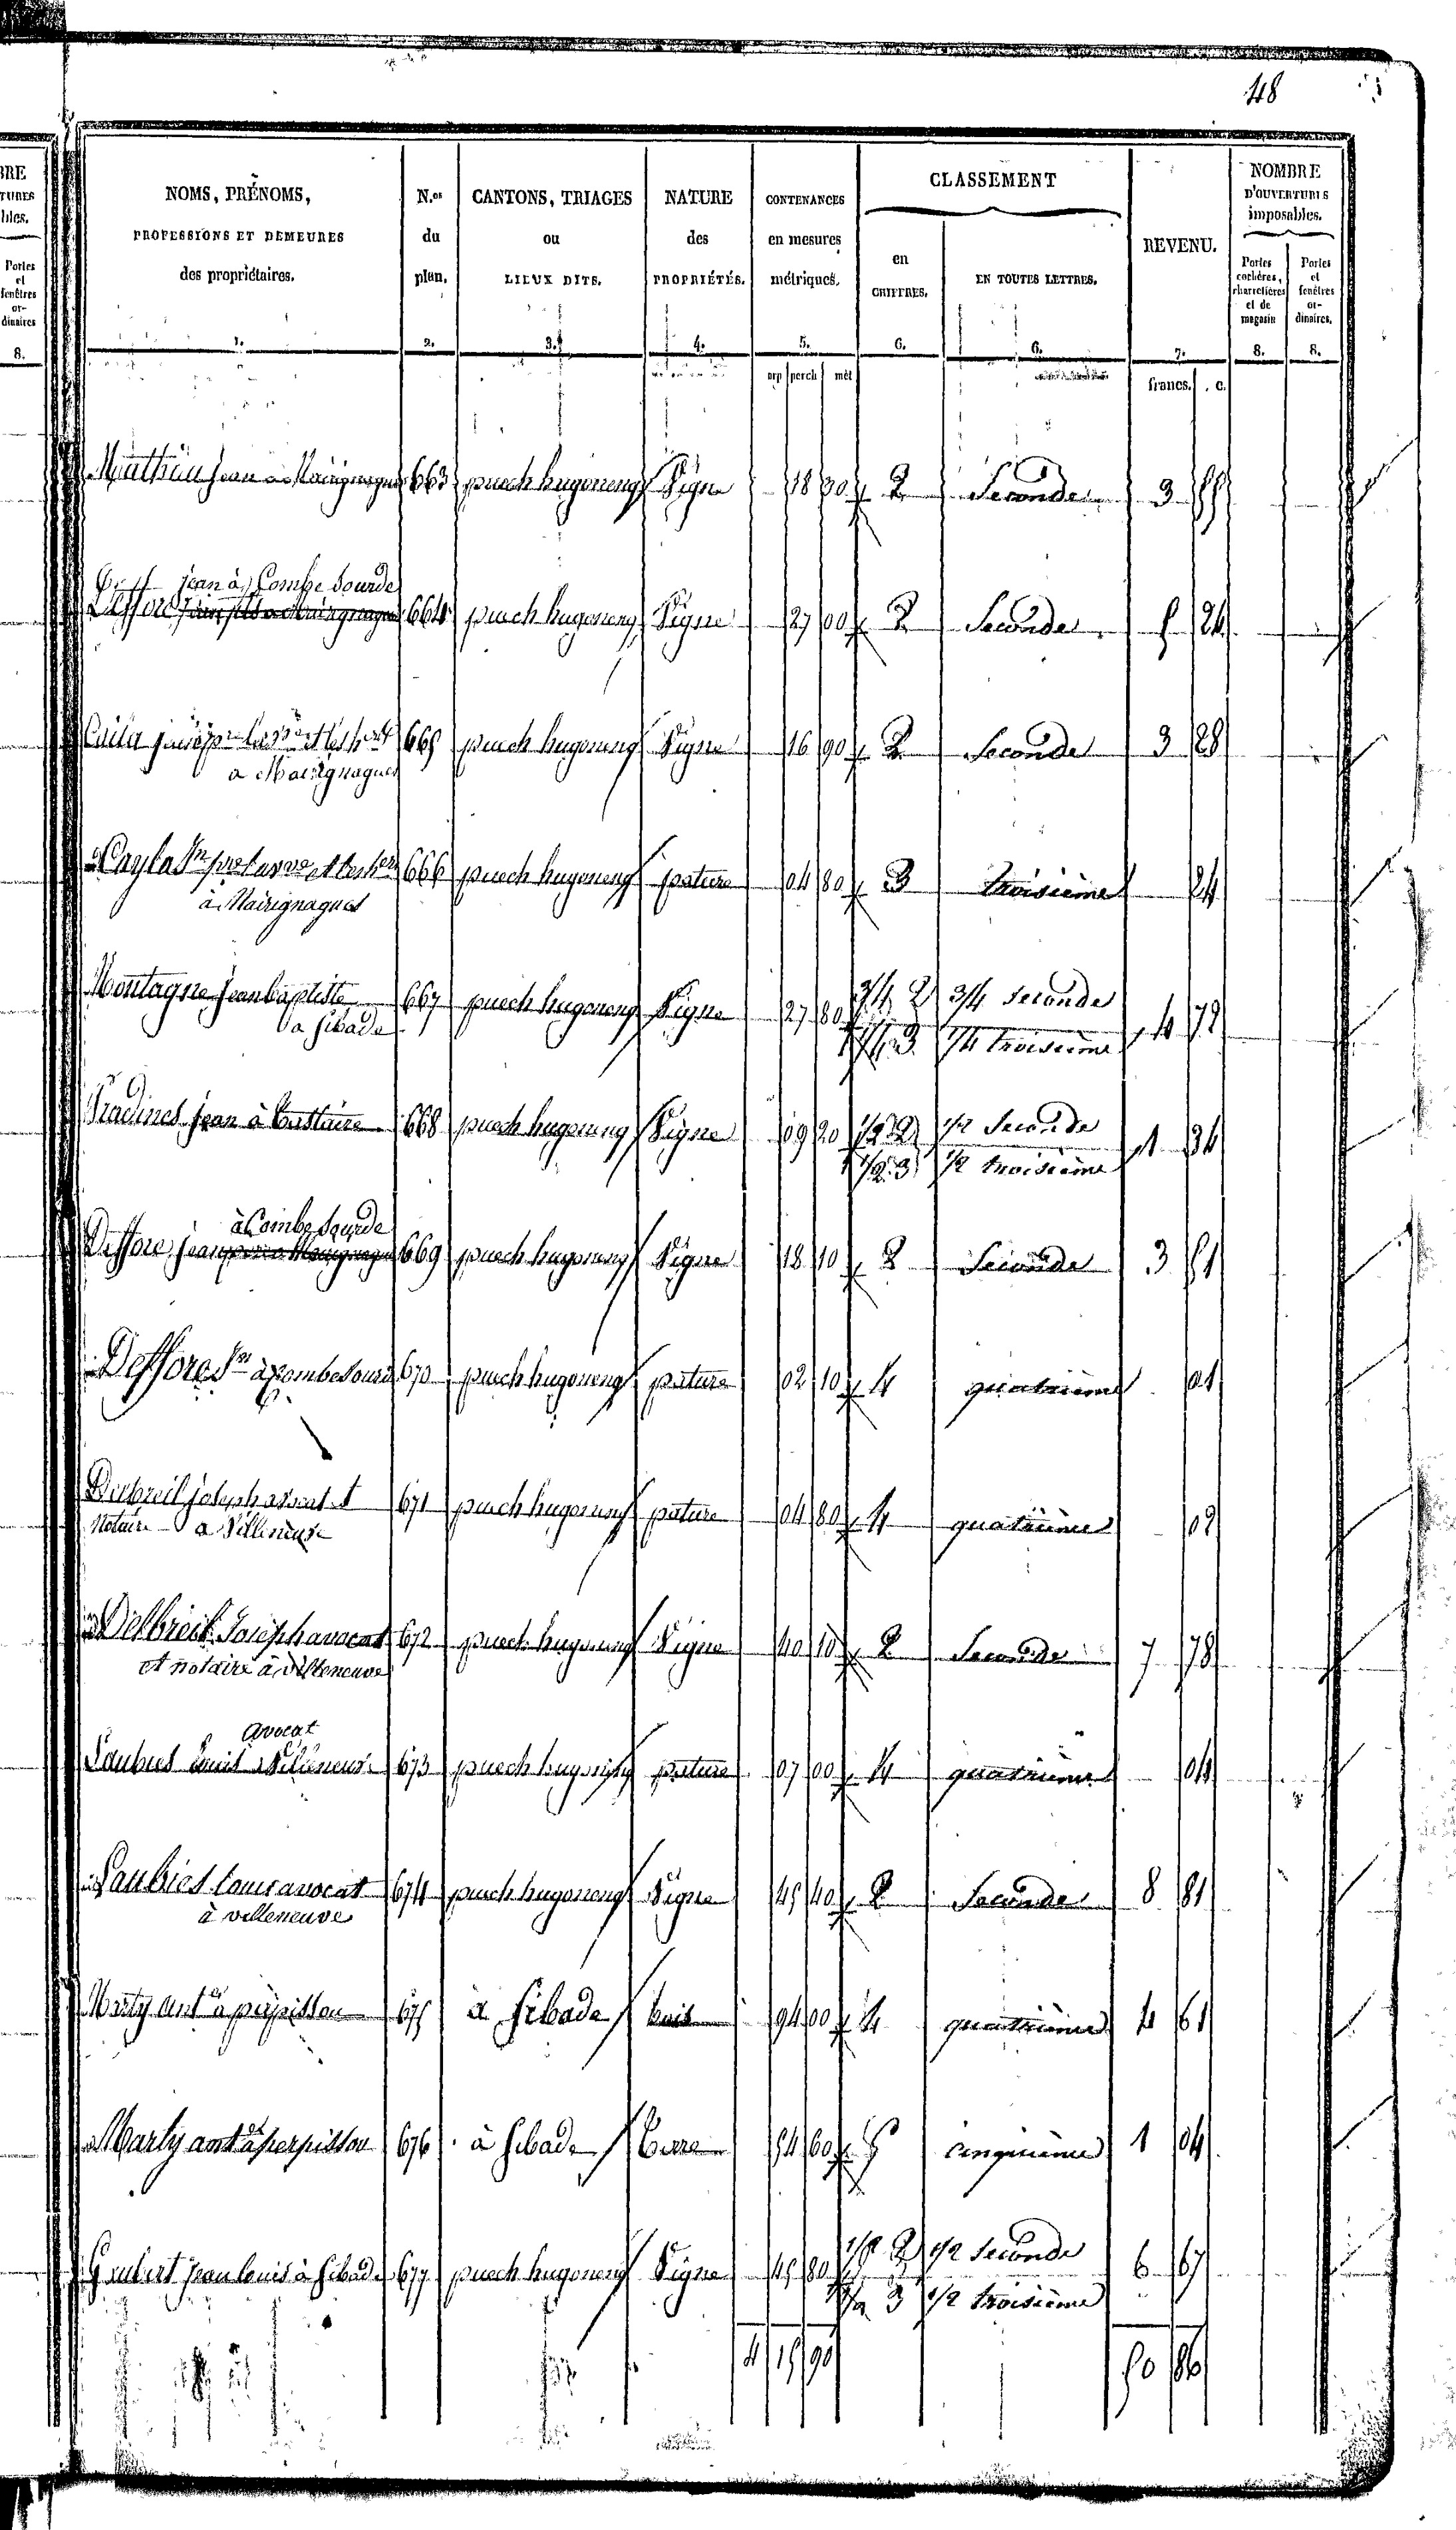 48
NOMS, PRÉNOMS,
PROFESSIONS ET DEMEURES
des propriétaires.
1.
N.os
du
plan.
2.
CANTONS, TRIAGES
ou
LIEUX DITS.
3.
NATURE
des
PROPRIÉTÉS.
4.
CONTENANCES
en mesures
métriques.
5.
CLASSEMENT
en
CHIFFRES.
6.
EN TOUTES LETTRES.
6.
REVENU.
7.
NOMBRE
D'OUVERTURES
imposables.
Portes
cochères,
charretières
et de
magasin
8.
Portes
et
fenêtres
or-
dinaires.
8.
arp perch mèt
francs. c.
Mathieu Jean a Mairignagues 663 puech hugoneng Vigne 18 30 2 Seconde 3 55
jean à Combe Sourde
Deffore 664 puech hugoneng Vigne 27 00 2 Seconde 5 24
Caila 665 puech hugoneng Vigne 16 90 2 Seconde 3 28
a Mairignagues
Cayla Jn pre la vve et les hers 666 puech hugoneng pature 04 80 3 troisième 24
à Mairignagues
Montagne jean baptiste 667 puech hugoneng Vigne 27 80 3/4 2 3/4 Seconde 4 72
a Sibade 1/4 3 1/4 troisième
Pradines jean à 668 puech hugoneng Vigne 09 20 1/2 2 1/2 Seconde 1 34
1/2 3 1/2 troisième
à Combe Sourde
Deffore jean 669 puech hugoneng Vigne 18 10 2 Seconde 3 51
Deffore Jn à combe sourde 670 puech hugoneng pature 02 10 4 quatrième 01
Delbreil joseph avocat et 671 puech hugoneng pature 04 80 4 quatrième 02
Notaire a Villeneuve
Delbreil Joseph avocat 672 puech hugoneng Vigne 40 10 2 Seconde 7 78
et notaire à villeneuve
avocat
Laubies Louis a Villeneuve 673 puech hugoneng pature 07 00 4 quatrième 04
Laubies Louis avocat 674 puech hugoneng Vigne 45 40 2 Seconde 8 81
à villeneuve
Marty ant.e à perpissou 675 à Sibade bois 94 00 4 quatrième 4 61
Marty ant.e à perpissou 676 à Sibade Terre 54 60 5 cinquième 1 04
Gaubert jean louis à Sibade 677 puech hugoneng Vigne 45 80 1/2 2 1/2 Seconde 6 67
1/2 3 1/2 troisième
4 15 90 50 86